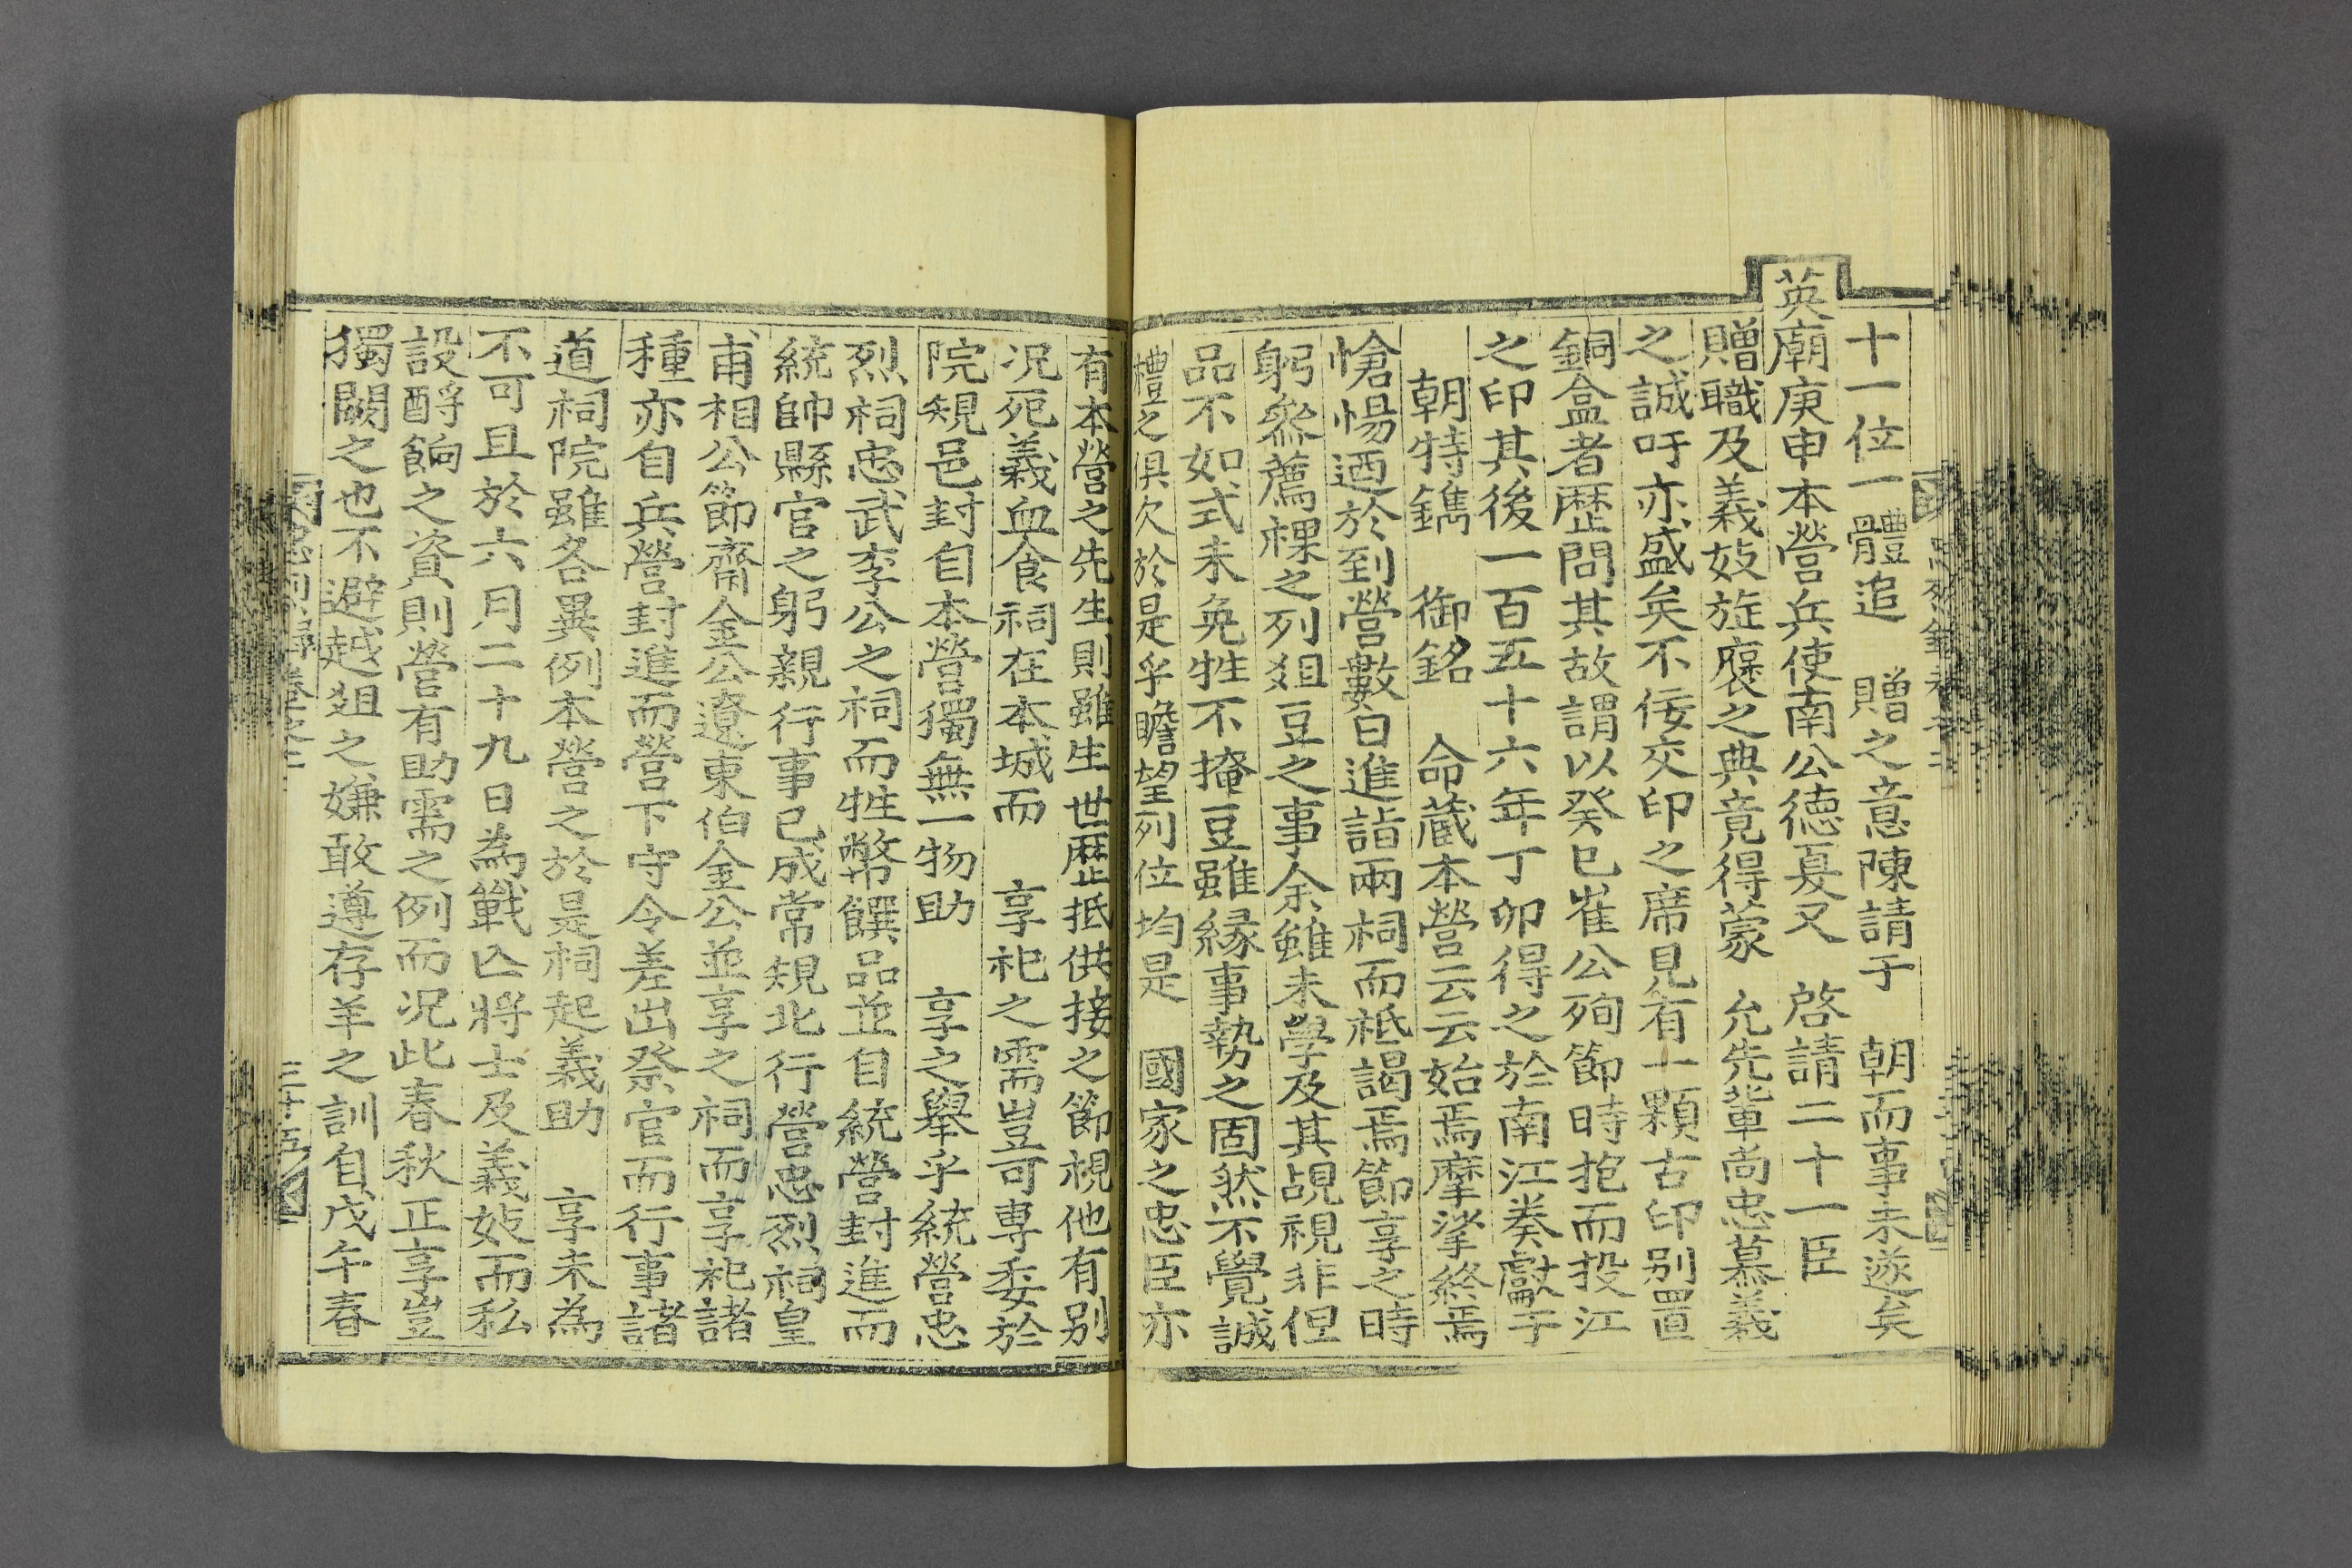 十一位一體追 贈之意陳請于 朝而事未遂矣
英廟庚申本營兵使南公德夏又 啓請二十一臣
贈職及義妓旌褒之典竟得蒙 允先輩尚忠慕義
之誠吁亦盛矣不佞交印之席見有一顆古印别置
銅盒者歷問其故謂以癸巳崔公殉節時抱而投江
之印其後一百五十六年丁卯得之於南江奏獻于
朝特鐫 御銘 命藏本營云云始焉摩挲終焉
愴惕迺於到營數日進詣兩祠而祗謁焉節享之時
躬叅薦祼之列爼豆之事余雖未學及其覘視非但
品不如式未免牲不掩豆雖緣事勢之固然不覺誠
禮之俱欠於是乎瞻望列位均是 國家之忠臣亦
有本營之先生則雖生世歷抵供接之節視他有别
况死義血食祠在本城而 享祀之需豈可專委於
院䂓邑封自本營獨無一物助 享之舉乎統營忠
烈祠忠武李公之祠而牲幣饌品並自統營封進而
統帥縣官之躬親行事已成常䂓北行營忠烈祠皇
甫相公節齋金公遼東伯金公並享之祠而享祀諸
種亦自兵營封進而營下守令差出祭官而行事諸
道祠院雖各異例本營之於是祠起義助 享未為
不可且於六月二十九日為戰亾將士及義妓而私
設酹餉之資則營有助需之例而况此春秋正享豈
獨闕之也不避越爼之嫌敢遵存羊之訓自戊午春
三十五